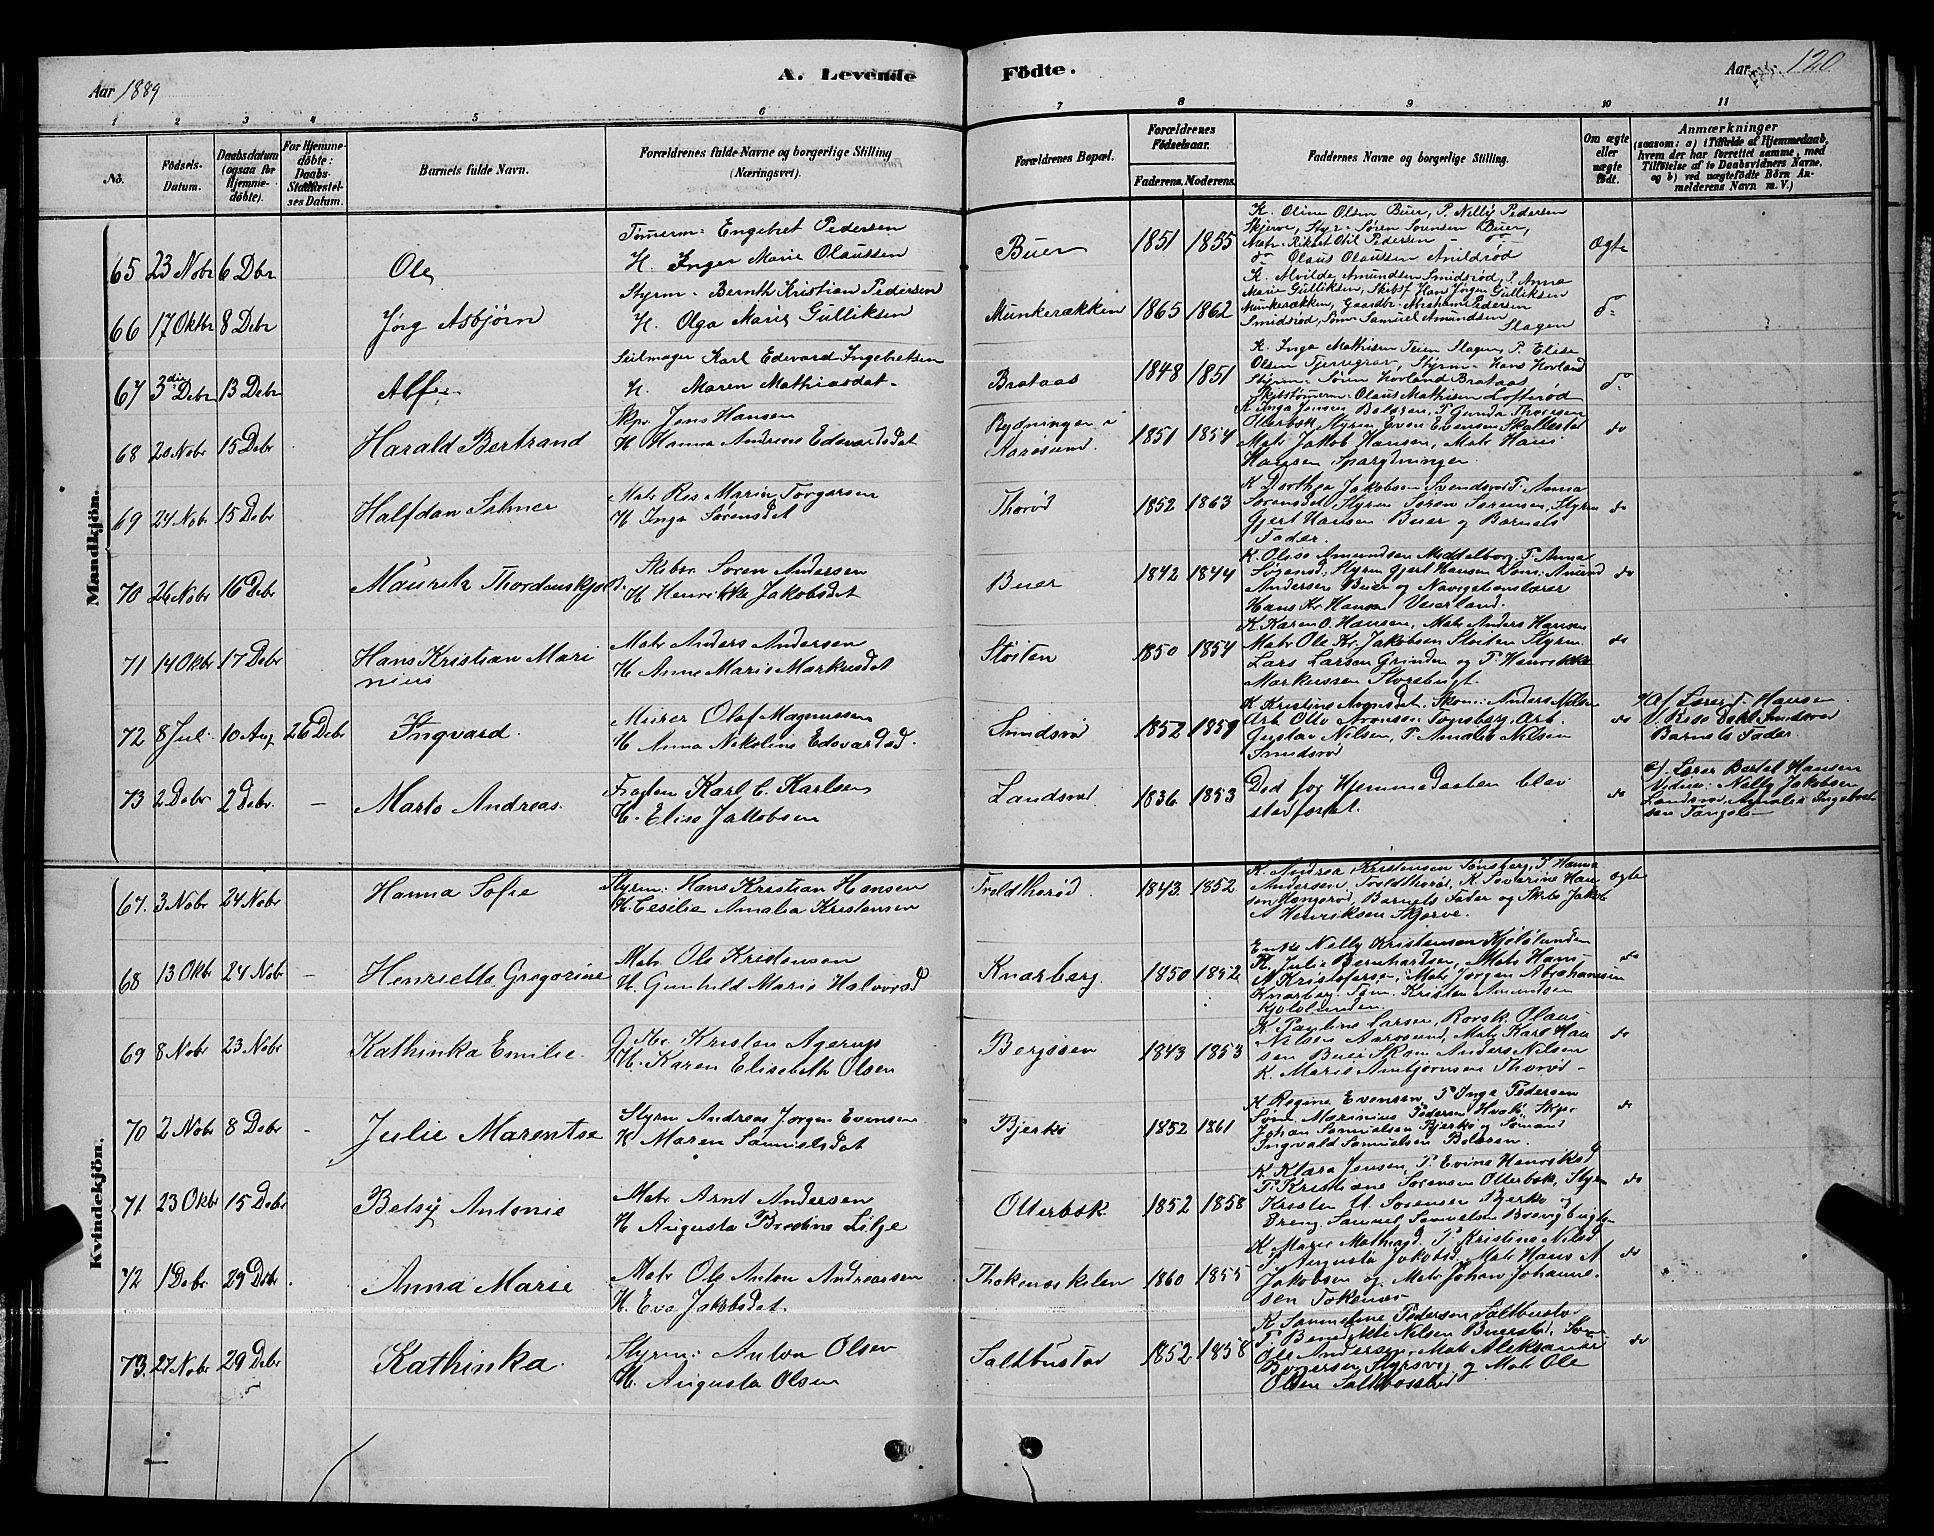 Aar 1889
A. Levende
Födte.
Aar 120
1 2 3 4 5 6 7 8 9 10 11
No.
Födsels-Datum.
Daabsdatum (ogsaa for Hjemmedöbte).
For Hjemmedøbte: Daabs-Stadfæstelses Datum.
Barnets fulde Navn.
Forældrenes fulde Navne og borgerlige Stilling (Næringsvei).
Forældrenes Bopæl.
Forældrenes Födselsaar.
Faderens. Moderens.
Faddernes Navne og borgerlige Stilling.
Om ægte eller uægte født.
Anmærkninger
(saasom: a) i Tilfælde af Hjemmedaab, hvem der har forrettet samme, med Tilföielse af to Daabsvidners Navne, og b) ved uægtefödte Börn Anmelderens Navn m. V.)
Mandkjön.
65 23 Nobr 6 Dbr
Ole
Tömerm: Engebret Pedersen
H. Inger Marie Olaussen
Buer 1851 1855
K. Oline Olsen Buer, P. Nelly Pedersen
Skjerve, Styr: Søren Sørensen Buer,
Matr. Rikset Otil Pedersen - do
do Olaus Olaussen Arildsrød
Ægte
66 17 Oktbr 8 Debr
Jørg Asbjörn
Styrm- Bernth Kristian Pedersen
H. Olga Marie Gulliksen
Munkerækken 1865 1862
K. Alvilde Amundsen Smidsrød, P. Anna
Marie Gulliksen, Skibsf Hans Jörgen Gulliksen
Munkerækken, Gaardbr. Abraham Pedersen
Smidsrød, Söm. Samuel Amundsen
Slagen
do
67 3die Debr 13 Debr
Alf
Seilmager Karl Edevard Ingebretsen
H. Maren Mathiasdat-
Brataas 1848 1851
K. Inga Mathisen Teien Slagen, P. Elise
Olsen Tjerregrav, Styrm- Hans Hovland
Styrm- Søren Hovland Brataas,
Skibstömerm- Olaus Mathisen Lofterød
do
68 20 Nobr 15 Debr
Harald Bertrand
Skpr. Jens Hansen
H Hanna Andrine Edevardsdat
Rydningen i Aarøsund. 1851 1854
K Inga Jensen Bolæren, P Gunda Thoresen
Otterbæk Styrm Even Evensen Skallestad
Matr Jakob Hansen, Matr Hans
Hansen Sparydningen.
do
69 24 Nobr 15 Debr
Halfdan Selmer
Matr Ras Marin Torgersen
H Inga Sørensdat
Thorød 1852 1863
K Dorthea Jakobsen Svendsrød P. Anna
Sørensdat Styrm Søren Sørensen, Styrm
Gjert Hansen Buer og Barnets
Fader.
do
70 26 Nobr 16 Debr
Mauritz Thordenskjold.
Skibsr. Søren Andersen
H Henrikke Jakobsdat
Buer 1842 1844
K. Olise Amundsen Meddelborg, P. Anna
Styrm Gjert Hansen Amund
Andersen Buer og Navigationslærer
Hans Kr. Hansen Veierland.
do
71 14 Oktbr 17 Debr
Hans Kristian Mari
nius
Matr Anders Andersen
H Anne Marie Markusdat
Stoiten 1850 1854
K Karen O. Hansen, Matr Anders Hansen
Matr Ole Kr. Jakobsen Stoiten Styrm
Lars Larsen Grinden og P Henrikke
Markussen Storebugt.
do
72 8 Jul. 10 Aug 26 Debr
Ingvard.
Murer Olaf Magnussen
H Anna Nikoline Edevardsd.
Smidsrød 1852 1859
K Kristine Aagesdat, Skom: Anders Nilsen
Arb Olle Aronsen Tønsberg, Arb.
Gustav Nilsen, P Amalie Nilsen
Smidsrød
do
Af Lærer J. Hansen
V. Rese Dahl Smidsrød
Barnets Fader.
73 2 Debr. 2 Debr. -
Marto Andreas.
Karl C. Karlsen
H. Elise Jakobsen
Landsrød. 1836 1853
Død før Hjemmedaaben blev
stadfæstet.
do
Lærer Bertel Hansen
Vidner: Nelly Jakobsen
Landsrød Amalie Ingebret
sen
Kvindekjön.
67. 3 Nobr 24 Nobr
Hanna Sofie
Styrm: Hans Kristian Hansen
H. Cecilie Amalia Kristensen
Troldthorød. 1843. 1852
K. Andrea Kristensen Tønsberg, P Hanna
Andersen, Troldthorød, K. Severine Han
sen Hangerød, Barnets Fader og Skbr Jakob
Henriksen Skjerve.
ægte
68 13 Oktbr 24 Nobr -
Henriette Gregorine
Matr Ole Kristensen
H. Gunhild Marie Halvorsd
Knarberg. 1850 1852
Enke Nelly Kristensen Kjölölunden
K. Julie Bernhardsen, Matr Hans
Kristofersen, Matr Jörgen Abrahamsen
Knarberg. Töm. Kristen Amundsen
Kjololunden
do
69 8 Nobr 23 Nobr
Kathinka Emilie
Kristen Agerup
H. Karen Elisabeth Olsen
Bergsøen 1843 1853
K Pauline Larsen, Olaus
Nilsen Aarøsund, Matr Karl Han
sen Buer Skom Anders Nilsen
K. Marie Ambjørnsen Thorød -
do
70 2 Nobr 8 Debr -
Julie Marentse
Styrm Andreas Jørgen Evensen
H Maren Samuelsdat
Bjerkø 1852 1861
K Regine Evensen P Inga Pedersen
Søm Marinius Pedersen Skpr
Johan Samuelsen Bjerkø og Sömand
Ingvald Samuelsen Bolæren.
do
71. 23 Oktbr 15 Debr
Betsy Antonie
Matr Arnt Andersen
H Augusta Bredine Lilje
Otterbæk 1852 1858
K Klara Jensen, P. Evine Henriksd
P. Kristiane Sørensen Otterbæk, Styrm
Kristen M. Sørensen Bjerkø og
Dreng Samuel Samuelsen
do
72 1 Debr 29 Debr
Anna Marie
Matr Ole Anton Andreassen
H. Eva Jakobsdat.
Thokenæskilen 1860 1855
K Marie P Kristine Nilsd
P Augusta Jakobsd, Matr Hans A
Jakobsen og Matr Johan Johanne-
sen Tokenæs
do
73. 27 Nobr 29 Debr
Kathinka.
Styrm: Anton Olsen
H. Augusta Olsen
Saltbustad 1852 1858
K Pedersen Saltbustad
P Nilsen Buerstad, Söm
Ole Andersen, Matr Aleksander
og Matr Ole
Olsen
do